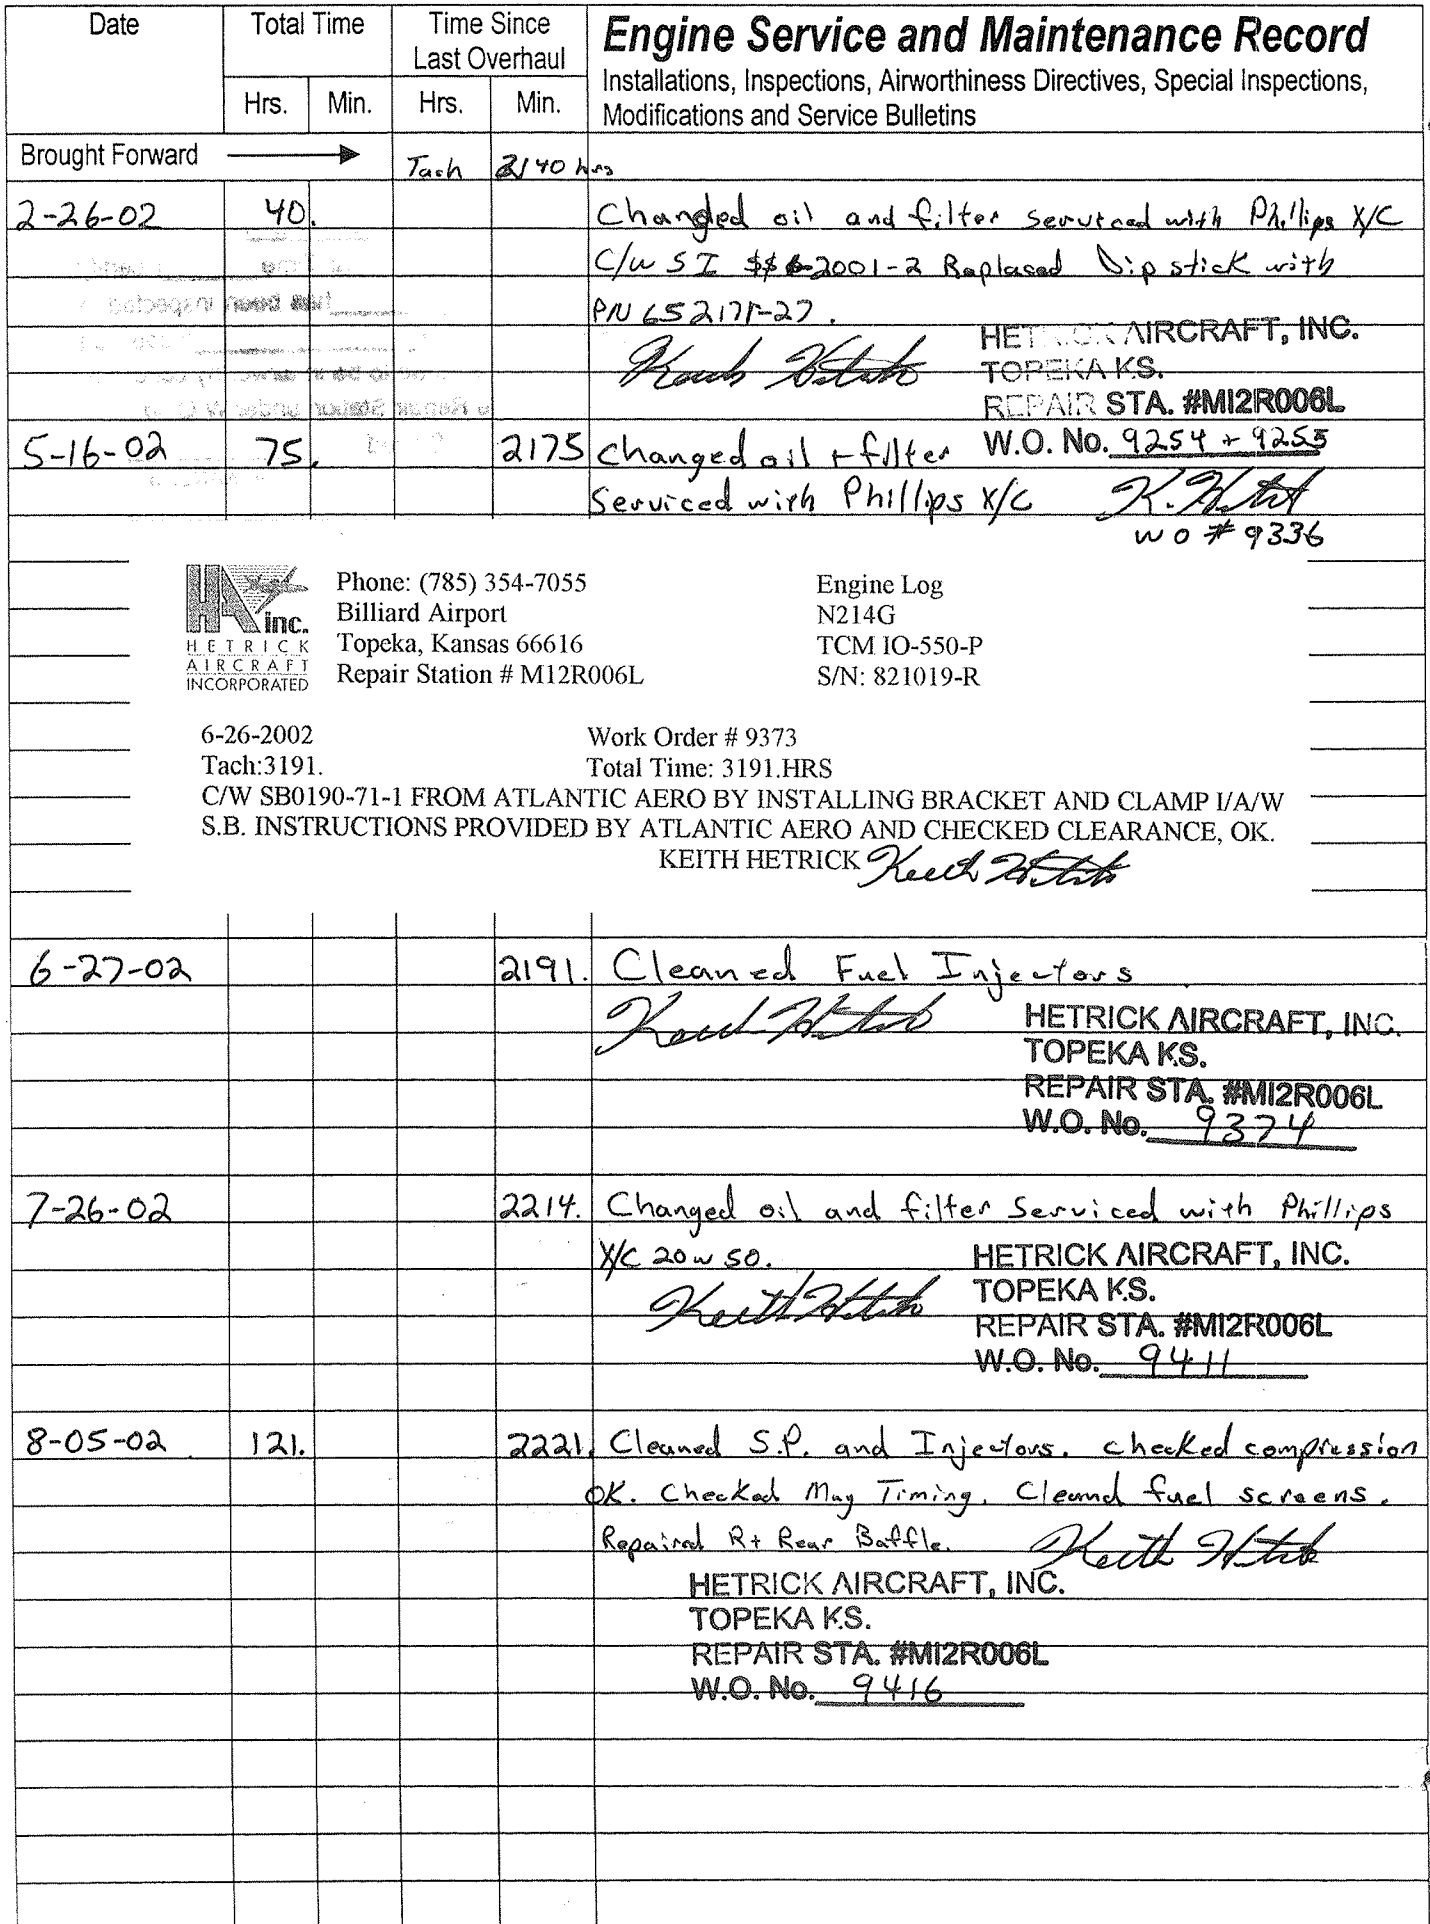 Date
Total Time
Time Since
Last Overhaul
Engine Service and Maintenance Record
Installations, Inspections, Airworthiness Directives, Special Inspections,
Modifications and Service Bulletins
Hrs. Min. Hrs. Min.
Brought Forward
Tach 2140 hrs
2-26-02 40. Changed oil and filter serviced with Phillips X/C
C/W S I 2001-2 Replased Dipstick with
PN
HETRICK AIRCRAFT, INC.
TOPEKA KS.
REPAIR STA. #MI2R006L
W.O. No. 9254 + 9255
5-16-02 75. 2175 Changed oil + filter
Serviced with Phillips X/C K. Hetrick
WO # 9336
HA inc.
HETRICK
AIRCRAFT
INCORPORATED
Phone: (785) 354-7055
Billiard Airport
Topeka, Kansas 66616
Repair Station # M12R006L
Engine Log
N214G
TCM IO-550-P
S/N: 821019-R
6-26-2002 Work Order # 9373
Tach:3191. Total Time: 3191.HRS
C/W SB0190-71-1 FROM ATLANTIC AERO BY INSTALLING BRACKET AND CLAMP I/A/W
S.B. INSTRUCTIONS PROVIDED BY ATLANTIC AERO AND CHECKED CLEARANCE, OK.
KEITH HETRICK Keith Hetrick
6-27-02 2191. Cleaned Fuel Injectors
Keith Hetrick
HETRICK AIRCRAFT, INC.
TOPEKA KS.
REPAIR STA. #MI2R006L
W.O. No. 9374
7-26-02 2214. Changed oil and filter Serviced with Phillips
X/C 20w50.
Keith Hetrick
HETRICK AIRCRAFT, INC.
TOPEKA KS.
REPAIR STA. #MI2R006L
W.O. No. 9411
8-05-02 121. 2221. Cleaned S.P. and Injectors. checked compression
OK. Checked Mag Timing. Cleaned fuel screens.
Repaired Rt Rear Baffle. Keith Hetrick
HETRICK AIRCRAFT, INC.
TOPEKA KS.
REPAIR STA. #MI2R006L
W.O. No. 9416